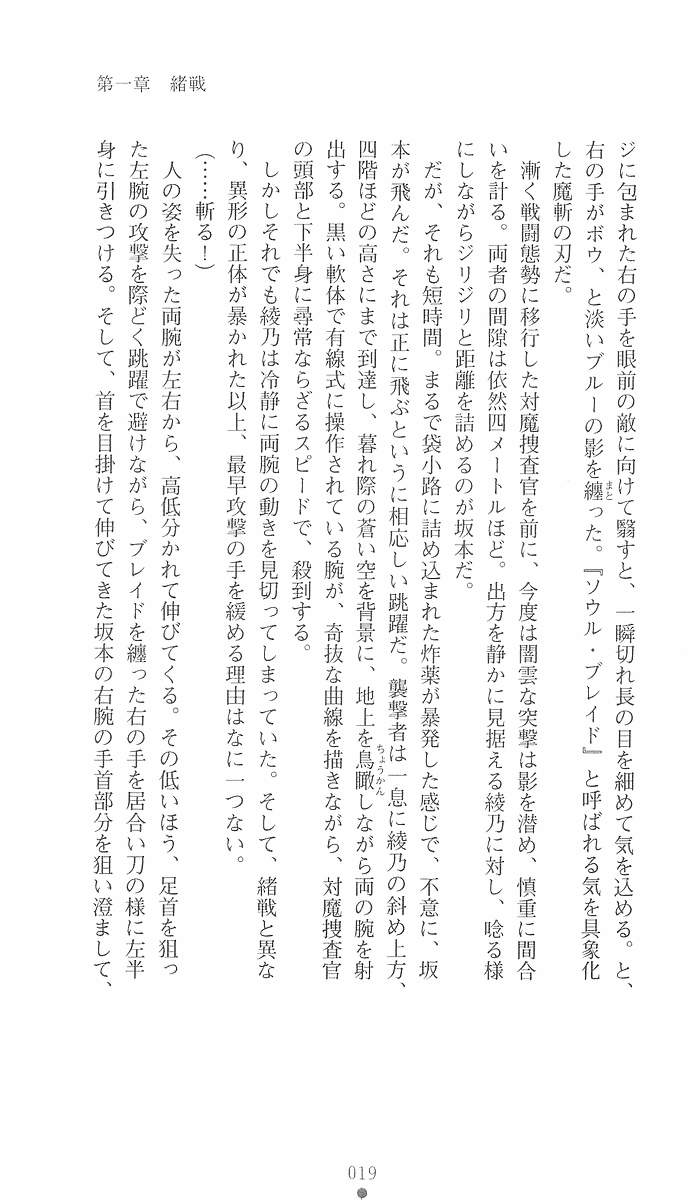 第一章　緒戦
ジに包まれた右の手を眼前の敵に向けて翳すと、一瞬切れ長の目を細めて気を込める。と、
右の手がボウ、と淡いブルーの影を纏った。『ソウル・ブレイド』と呼ばれる気を具象化
まと
した魔斬の刃だ。
　漸く戦闘態勢に移行した対魔捜査官を前に、今度は闇雲な突撃は影を潜め、慎重に間合
いを計る。両者の間隙は依然四メートルほど。出方を静かに見据える綾乃に対し、唸る様
にしながらジリジリと距離を詰めるのが坂本だ。
　だが、それも短時間。まるで袋小路に詰め込まれた炸薬が暴発した感じで、不意に、坂
本が飛んだ。それは正に飛ぶというに相応しい跳躍だ。襲撃者は一息に綾乃の斜め上方、
四階ほどの高さにまで到達し、暮れ際の蒼い空を背景に、地上を鳥瞰しながら両の腕を射
ちょうかん
出する。黒い軟体で有線式に操作されている腕が、奇抜な曲線を描きながら、対魔捜査官
の頭部と下半身に尋常ならざるスピードで、殺到する。
　しかしそれでも綾乃は冷静に両腕の動きを見切ってしまっていた。そして、緒戦と異な
り、異形の正体が暴かれた以上、最早攻撃の手を緩める理由はなに一つない。
（……斬る！）
　人の姿を失った両腕が左右から、高低分かれて伸びてくる。その低いほう、足首を狙っ
た左腕の攻撃を際どく跳躍で避けながら、ブレイドを纏った右の手を居合い刀の様に左半
身に引きつける。そして、首を目掛けて伸びてきた坂本の右腕の手首部分を狙い澄まして、
019